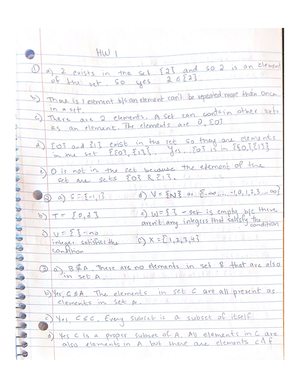 HW 1
① a) 2 exists in the set {2} and so 2 is an element
of the set. So yes 2 ∈ {2}.
b) There is 1 element b/c an element can't be repeated more than once
in a set.
c) There are 2 elements. A set can contain other sets
as an element. The elements are 0, {0}
d) {0} and {1} exist in the set so they are elements
in the set {{0}, {1}}. Yes, {0} is in {{0},{1}}
e) 0 is not in the set because the element of the
set are sets {0} & {1}
② a) S = {-1, 1}
b) T = {0, 2}
c) U = { } - no
integer satisfies the
condition
d) V =
e) W = { } - set is empty b/c there
aren't any integers that satisfy the condition
f) X = {1, 2, 3, 4}
③ a) There are no elements in set B that are also
in set A.
b) Yes, C ⊆ A. The elements in set C are all present as
elements in set A.
c) Yes, C ⊆ C. Every subset is a subset of itself
d) Yes C is a proper subset of A. All elements in C are
also elements in A but there are elements